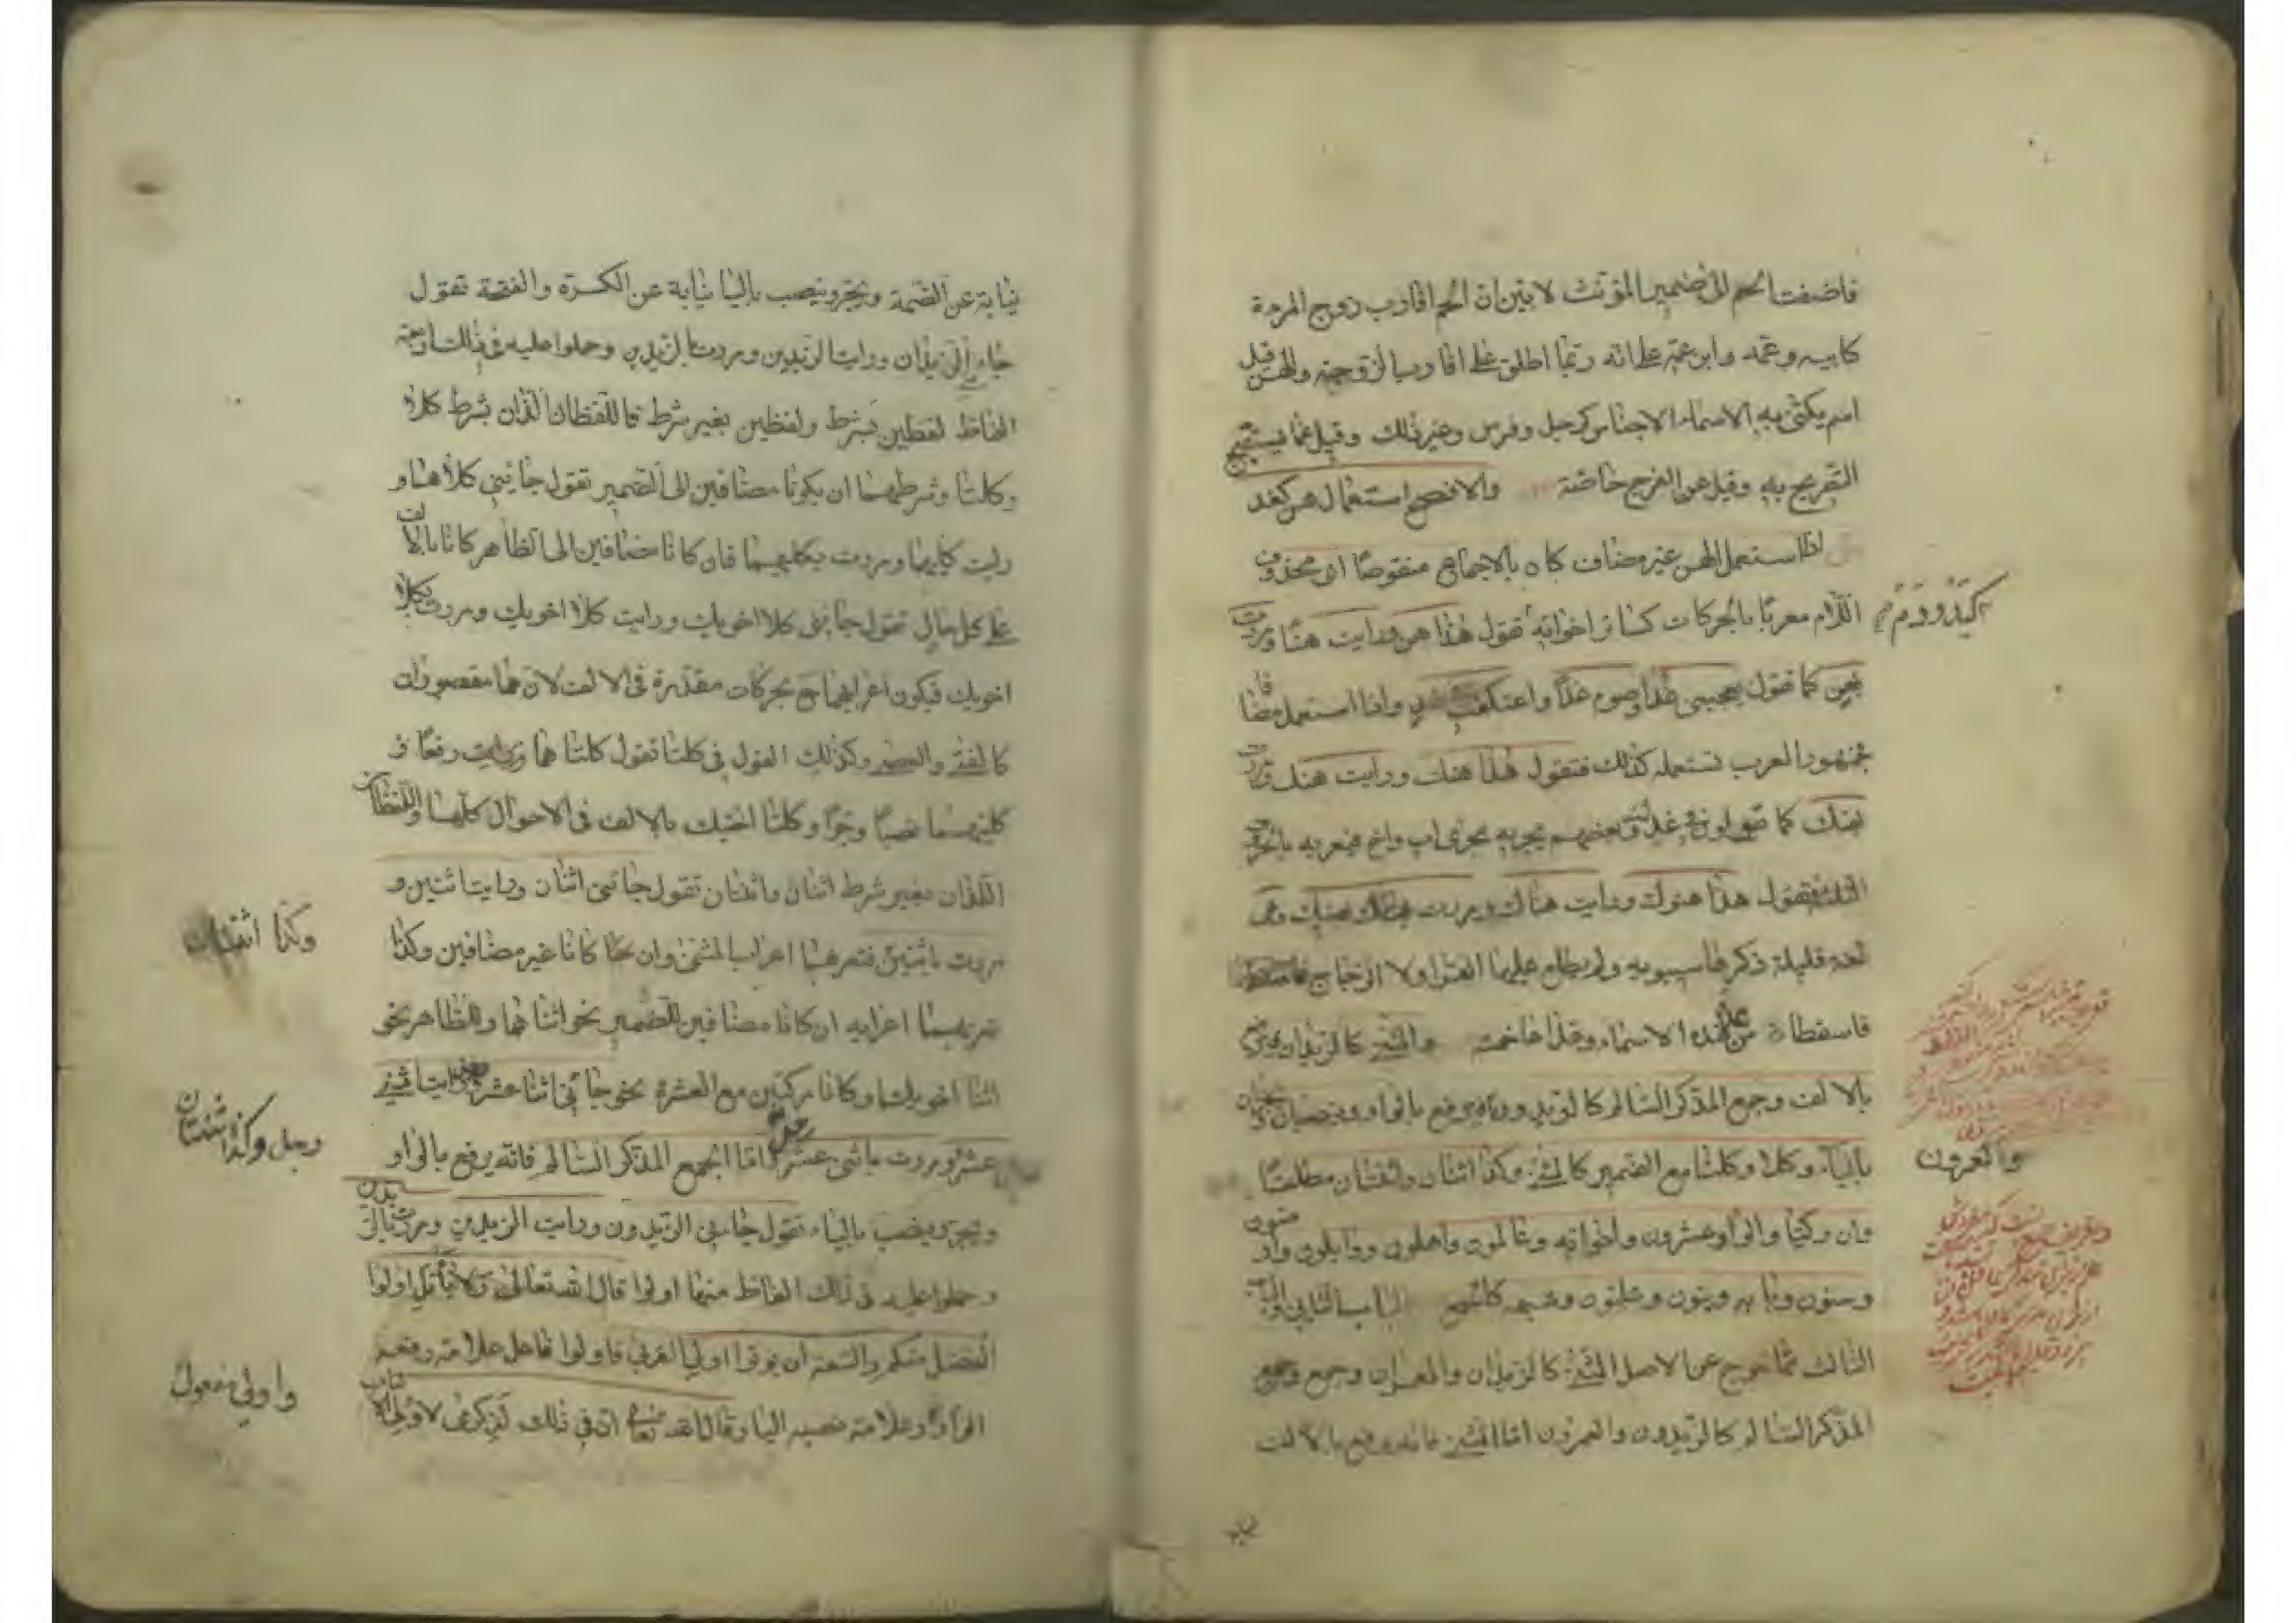 فاضفت الحم الى ضمير المؤنث لابين ان الحم اقارب زوج المرءة
كابيه وعمه وابن عمه على انه ربما اطلق على اقارب الزوجة والهن قيل
اسم يكنى به الاسماء الاجناس كرجل وفرس وغير ذلك وقيل عما يستقبح
التصريح به وقيل عن الفرج خاصة والافصح استعمال هن كغد
اذا استعمل الهن غير مضاف كان بالاجماع منقوصا اى محذوف
اللام معربا بالحركات كسائر اخواته تقول هذا هن ورايت هنا ومررت
بهن كما تقول يعجبنى غد وصوم غدا واعتكف فى غد واذا استعمل مضافا
فجمهور العرب تستعمله كذلك فتقول هذا هنك ورايت هنك ومررت
بهنك كما تقولون فى غدك وبعضهم يجريه مجرى اب واخ فيعربه بالحروف
الثلثة فيقول هذا هنوك ورايت هناك ومررت بهنيك وهى
لغة قليلة ذكرها سيبويه ولم يطلع عليها الفرا ولا الزجاج
فاسقطاه من هذه الاسماء وعداها خمسة والمثنى كالزيدان فيرفع
بالالف وجمع المذكر السالم كالزيدون فيرفع بالواو وينصبان ويجران
بالياء وكلا وكلتا مع الضمير كالمثنى وكذا اثنان واثنتان مطلقا
وان ركبا والواو عشرون واخواته وعالمون واهلون ووابلون وارضون
وسنون وبابه وبنون وعليون وشبهه كالجمع الباب الثانى والباب
الثالث مما خرج عن الاصل المثنى كالزيدان والعمران وجمع
المذكر السالم كالزيدون والعمرون اما المثنى فانه يرفع بالالف
كيد ودم
والعمرون
نيابة عن الضمة ويجر وينصب باليا نيابة عن الكسرة والفتحة تقول
جاءنى الزيدان ورايت الزيدين ومررت بالزيدين وحملوا عليه فى ذلك اربعة
الفاظ لفظين بشرط ولفظين بغير شرط فاللفظان اللذان بشرط كلا
وكلتا وشرطهما ان يكونا مضافين الى الضمير تقول جائنى كلاهما و
رايت كليهما ومررت بكليهما فان كانا مضافين الى الظاهر كانا بالالف
على كل حال تقول جائنى كلا اخويك ورايت كلا اخويك ومررت بكلا
اخويك فيكون اعرابهما ح بحركات مقدرة فى الالف لانهما مقصوران
كالفتى والعصا وكذلك القول فى كلتا تقول كلتاهما رفعا و
كلتيهما نصبا وجرا وكلتا اختيك بالالف فى الاحوال كلها واللفظان
اللذان بغير شرط اثنان واثنتان تقول جائنى اثنان ورايت اثنين و
مررت باثنين فتعربهما اعراب المثنى وان كانا غير مضافين وكذا
تعربهما اعرابه ان كانا مضافين للضمير نحو اثناهما وللظاهر نحو
اثنا اخويك او كانا مركبين مع العشرة نحو جائنى اثنا عشر ورايت اثنى
عشر ومررت باثنى عشر رجلا واما الجمع المذكر السالم فانه يرفع بالواو
ويجر وينصب بالياء تقول جاءنى الزيدون ورايت الزيدين ومررت بالزيدين
وحملوا عليه فى ذلك الفاظ منها اولوا قال الله تعالى ولا ياتل اولوا
الفضل منكم والسعة ان يؤتوا اولى القربى فاولوا فاعل علامة رفعه
الواو وعلامة نصبه اليا وقال الله تعالى ان فى ذلك لذكرى لاولى الالباب
وكذا اثنتان
رجل وكذا ثنتان
واولى مفعول